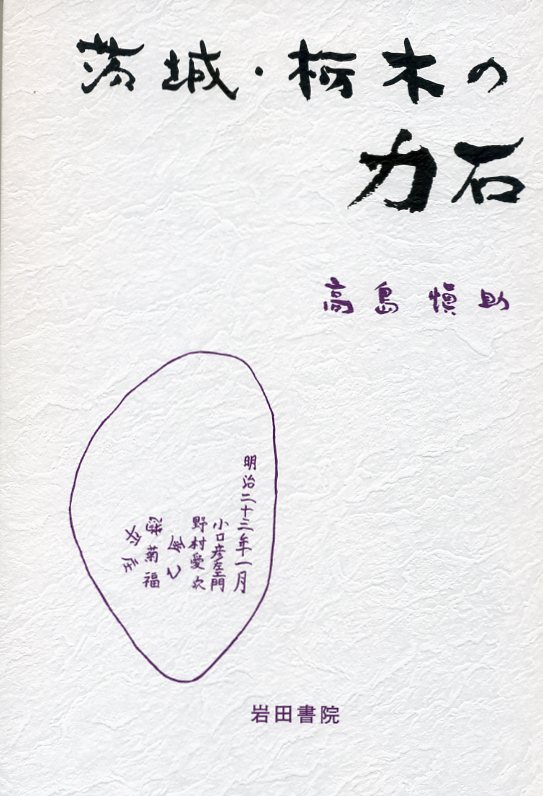 茨城・栃木の
力石
高島愼助
明治二十三年一月
小口彦左門
野村愛次
菊福
岩田書院